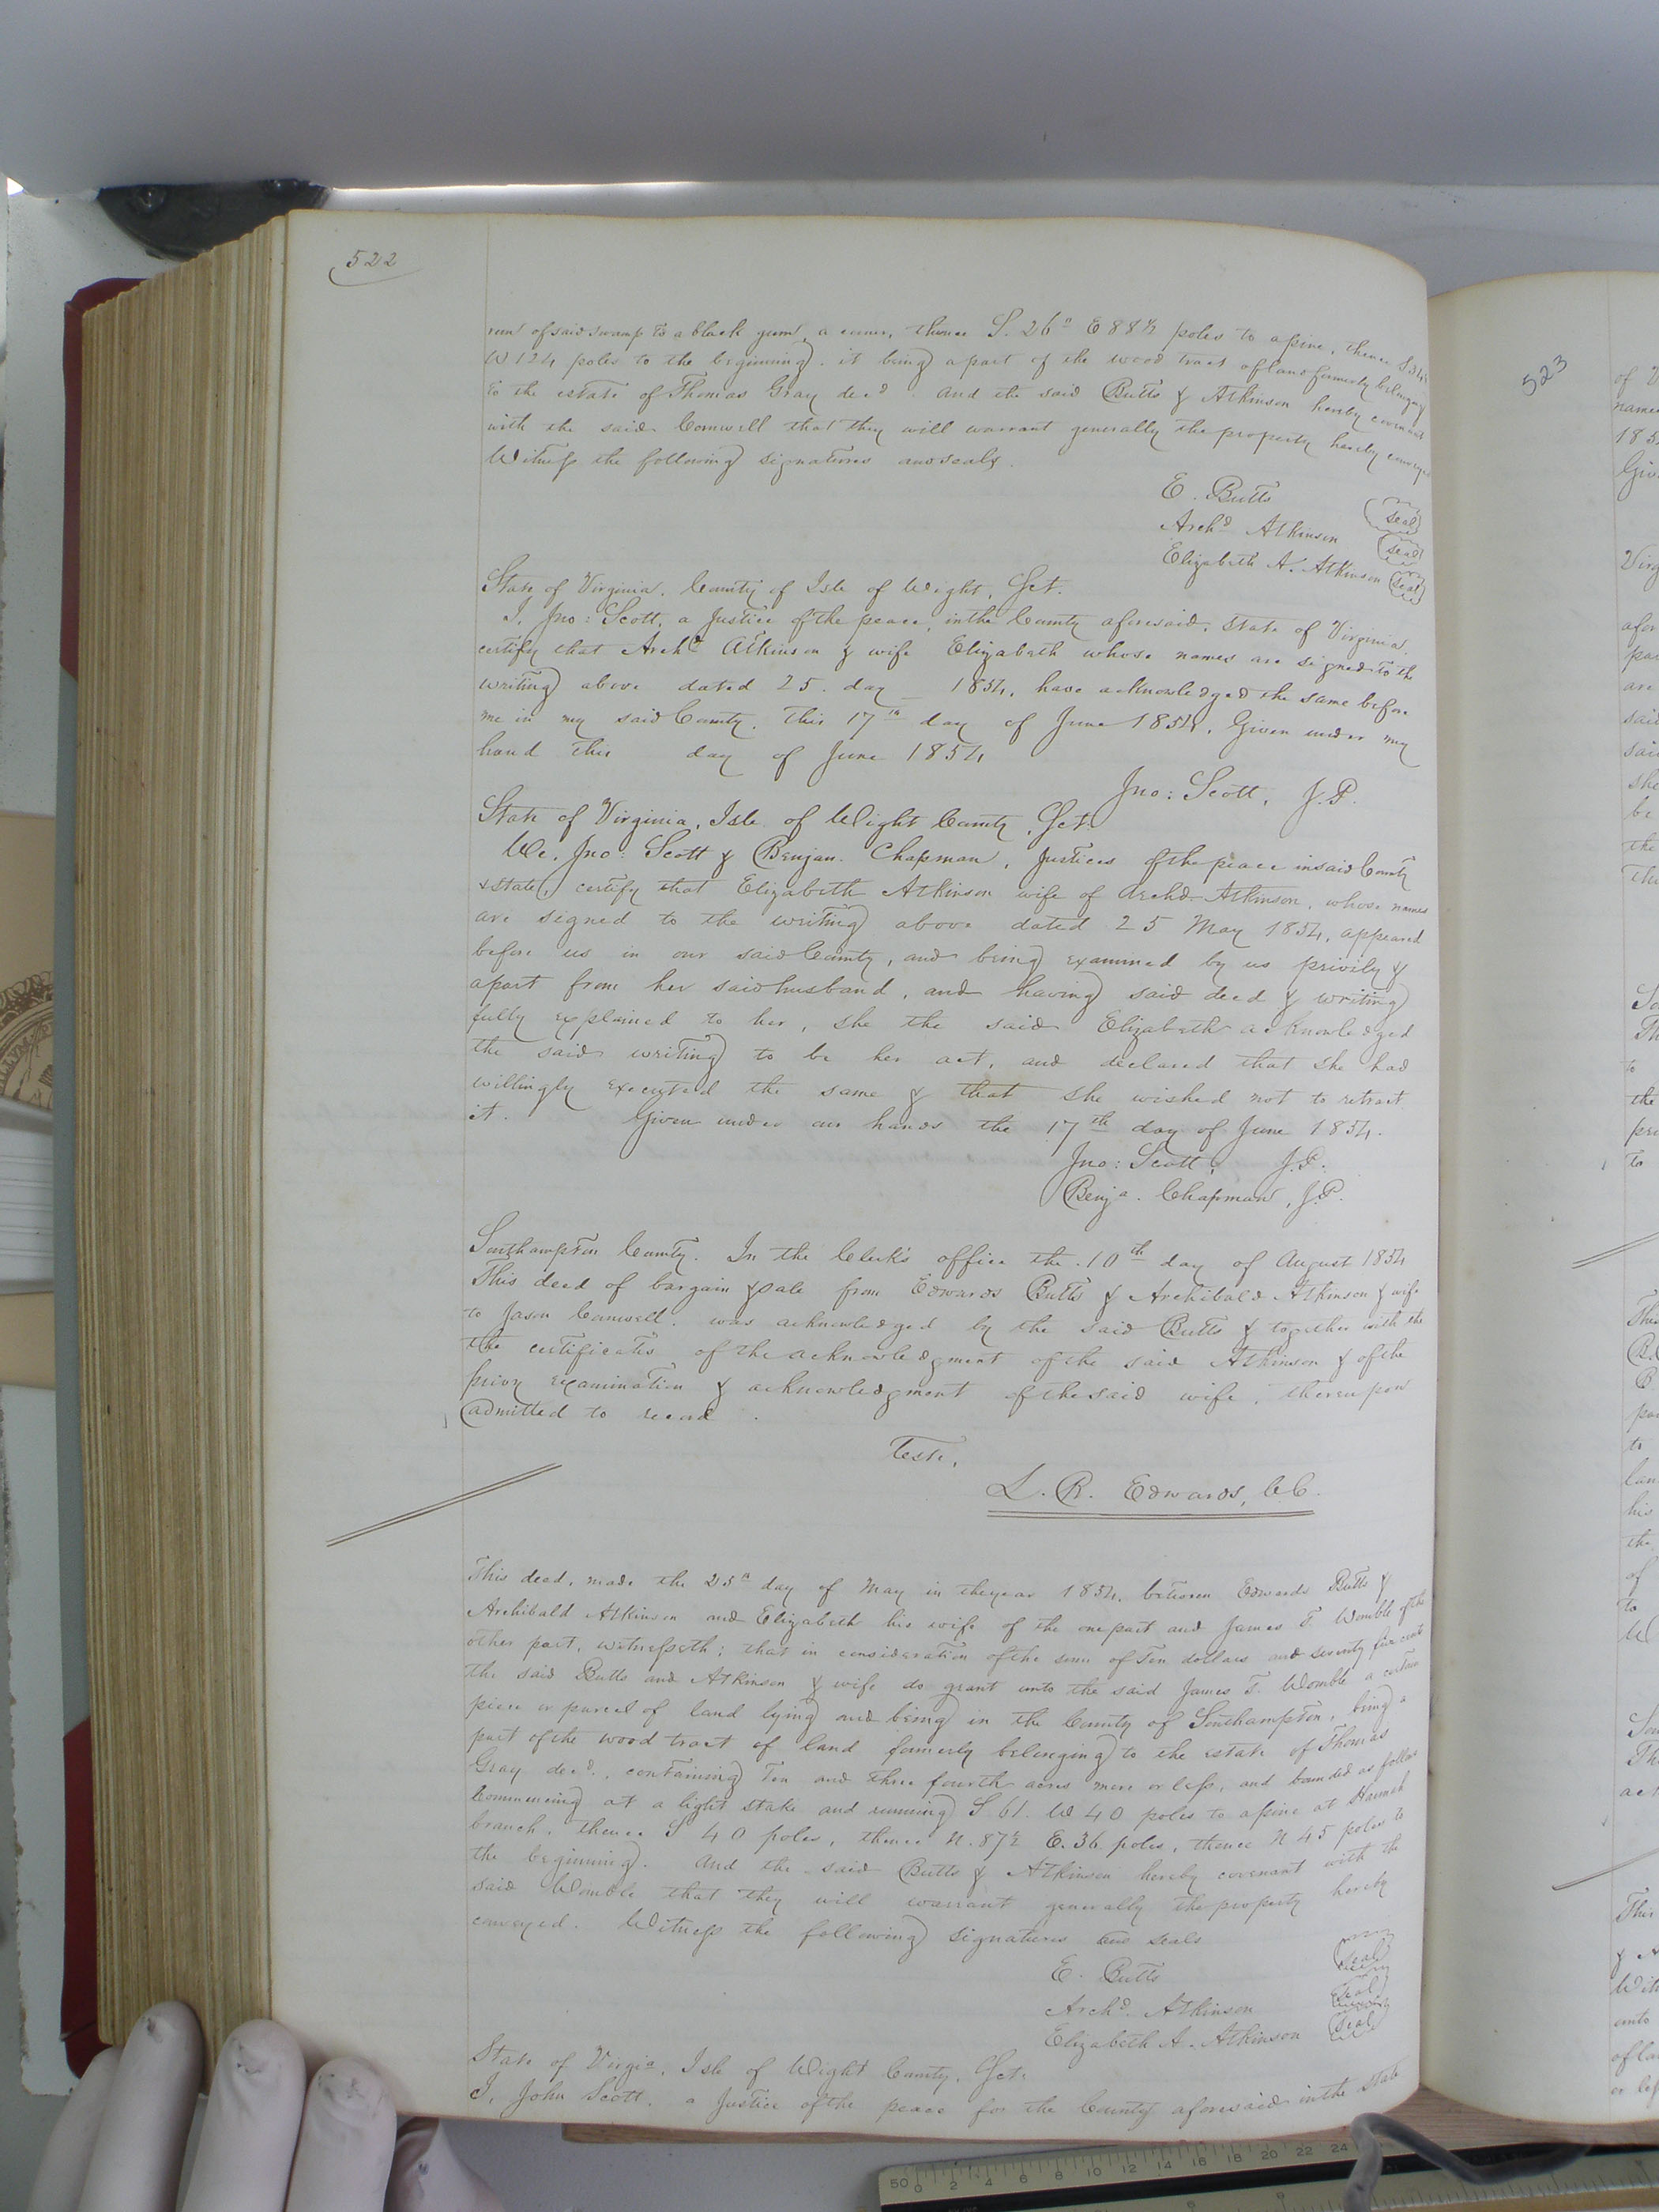 522
run of said swamp to a black gum, a corner, thence S. 26° E 88½ poles to a pine, thence S 34
W 124 poles to the beginning. it being a part of the wood tract of land formerly belonging
to the estate of Thomas Gray decd. And the said Butts & Atkinson hereby covenant
with the said Cornwell that they will warrant generally the property hereby conveyed
Witness the following signatures and seals.
E. Butts seal
Archd Atkinson seal
Elizabeth A. Atkinson seal
State of Virginia, County of Isle of Wight, Sct.
I, Jno: Scott, a Justice of the peace, in the County aforesaid, State of Virginia.
certify that Archd Atkinson & wife Elizabeth whose names are signed to the
writing above dated 25. day _ 1854, have acknowledged the same before
me in my said County. This 17th day of June 1854. Given under my
hand this day of June 1854
Jno: Scott, J.P.
State of Virginia, Isle of Wight County, Sct.
We, Jno: Scott & Benjan. Chapman, Justices of the peace in said County
& state, certify that Elizabeth Atkinson wife of Archd Atkinson, whose names
are signed to the writing above dated 25 May 1854, appeared
before us in our said County, and being examined by us privily &
apart from her said husband, and having said deed & writing
fully explained to her, she the said Elizabeth acknowledged
the said writing to be her act, and declared that she had
willingly executed the same & that she wished not to retract
it. Given under our hands the 17th day of June 1854.
Jno: Scott, J.P.
Benja. Chapman, J.P.
Southampton County. In the Clerk's office the 10th day of August 1854
This deed of bargain & sale from Edwards Butts & Archibald Atkinson & wife
to Jason Cornwell. was acknowledged by the said Butts & together with the
the certificates of the acknowledgment of the said Atkinson & of the
privy examination & acknowledgment of the said wife, thereupon
admitted to record.
Teste,
L. R. Edwards, CC.
This deed, made the 25th day of May in the year 1854, between Edwards Butts &
Archibald Atkinson and Elizabeth his wife of the one part and James T. Womble of the
other part, witnesseth; that in consideration of the sum of Ten dollars and seventy five cents
the said Butts and Atkinson & wife do grant unto the said James T. Womble a certain
piece or parcel of land lying and being in the County of Southampton, being a
part of the wood tract of land formerly belonging to the estate of Thomas
Gray decd., containing Ten and three fourth acres more or less, and bounded as follows
Commencing at a light stake and running S 61. W 40 poles to a pine at Hannah
branch, thence S 40 poles, thence N. 87½ E. 36 poles, thence N 45 poles to
the beginning. And the said Butts & Atkinson hereby covenant with the
said Womble that they will warrant generally the property hereby
conveyed. Witness the following signatures and seals
E. Butts seal
Archd. Atkinson seal
Elizabeth A. Atkinson seal
State of Virgia, Isle of Wight County, Sct.
I, John Scott, a Justice of the peace for the County aforesaid in the state
523